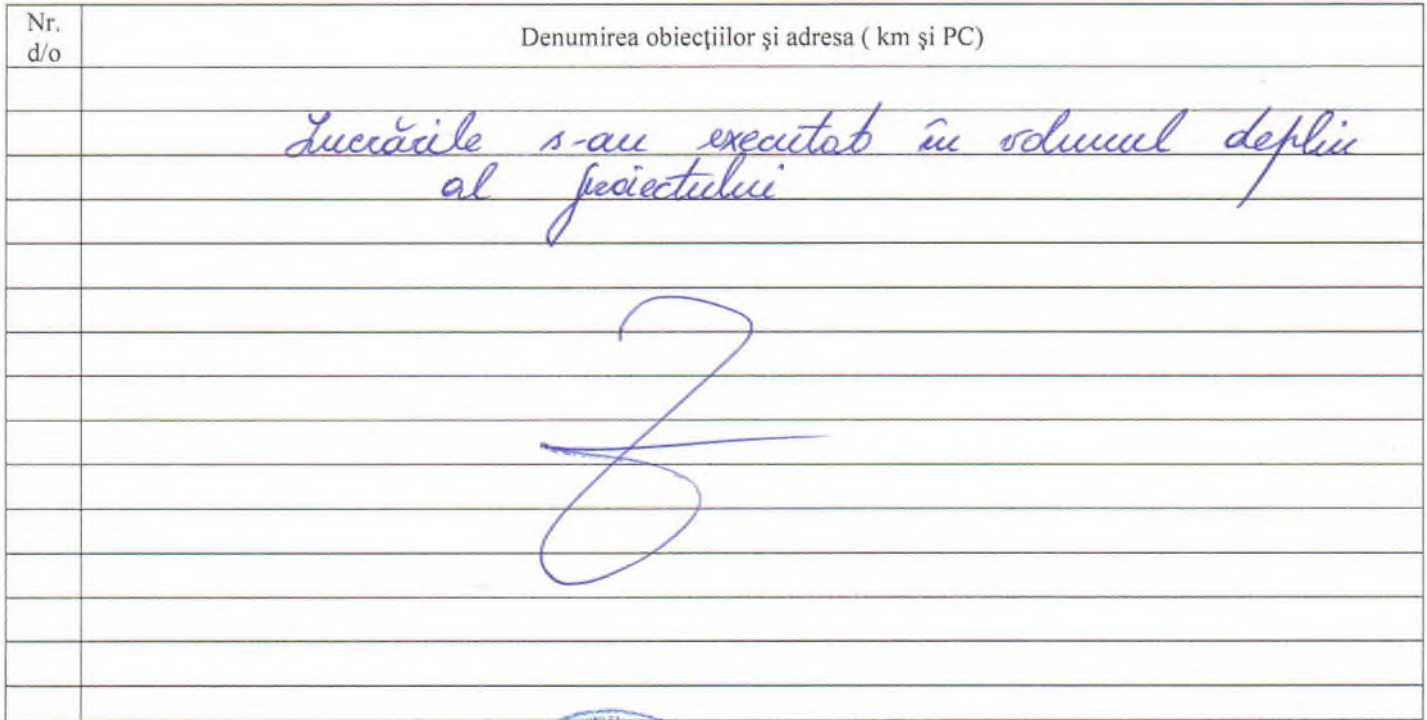 Nr.
d/o
Denumirea obiecțiilor și adresa ( km și PC)
Lucrările s-au executat în volumul deplin
al proiectului